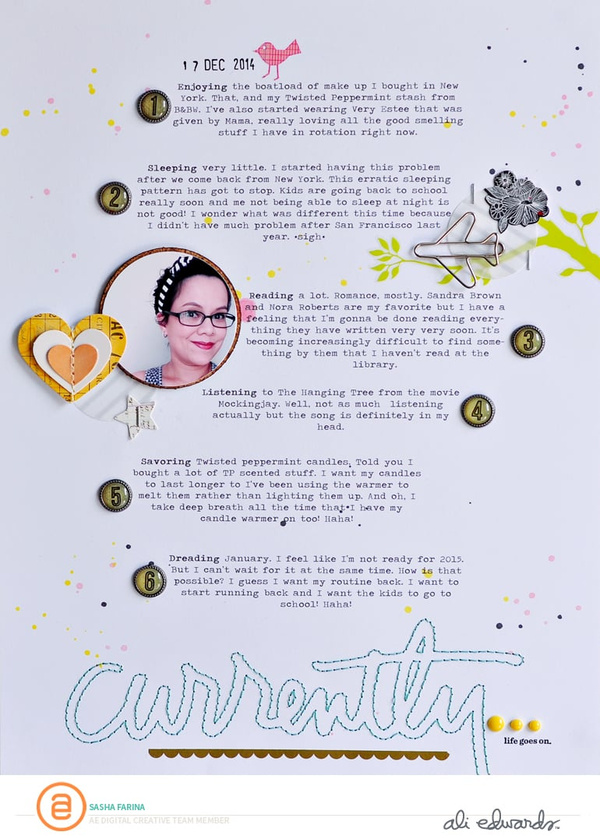 17 DEC 2014
1
Enjoying the boatload of make up I bought in New
York. That, and my Twisted Peppermint stash from
B&BW. I've also started wearing Very Estee that was
given by Mama, really loving all the good smelling
stuff I have in rotation right now.
2
Sleeping very little. I started having this problem
after we come back from New York. This erratic sleeping
pattern has got to stop. Kids are going back to school
really soon and me not being able to sleep at night is
not good! I wonder what was different this time because
I didn't have much problem after San Francisco last
year. *sigh*
Reading a lot. Romance, mostly. Sandra Brown
and Nora Roberts are my favorite but I have a
feeling that I'm gonna be done reading every-
thing they have written very very soon. It's
becoming increasingly difficult to find some-
thing by them that I haven't read at the
library.
3
Listening to The Hanging Tree from the movie
Mockingjay. Well, not as much listening
actually but the song is definitely in my
head.
4
Savoring Twisted peppermint candles. Told you I
bought a lot of TP scented stuff. I want my candles
to last longer to I've been using the warmer to
melt them rather than lighting them up. And oh, I
take deep breath all the time that I have my
candle warmer on too! Haha!
5
Dreading January. I feel like I'm not ready for 2015.
But I can't wait for it at the same time. How is that
possible? I guess I want my routine back. I want to
start running back and I want the kids to go to
school! Haha!
6
currently...
life goes on.
a
SASHA FARINA
AE DIGITAL CREATIVE TEAM MEMBER
ali edwards